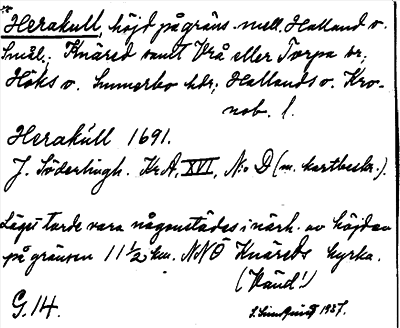 Herakull, höjd på gräns. mell. Halland o.
Smål.; Knäred samt Vrå eller Torpa sr;
Höks o. Sunnerbo hdr; Hallands o. Kro-
nob. l.
Herakull 1691.
J. Söderlingh. KrA, XVI, N:o D (m. kartbeskr.).
Läget torde vara någonstädes i närh. av höjden
på gränsen 11 1/2 km. NNÖ Knäreds kyrka.
(Vänd!)
G. 14.
1937.